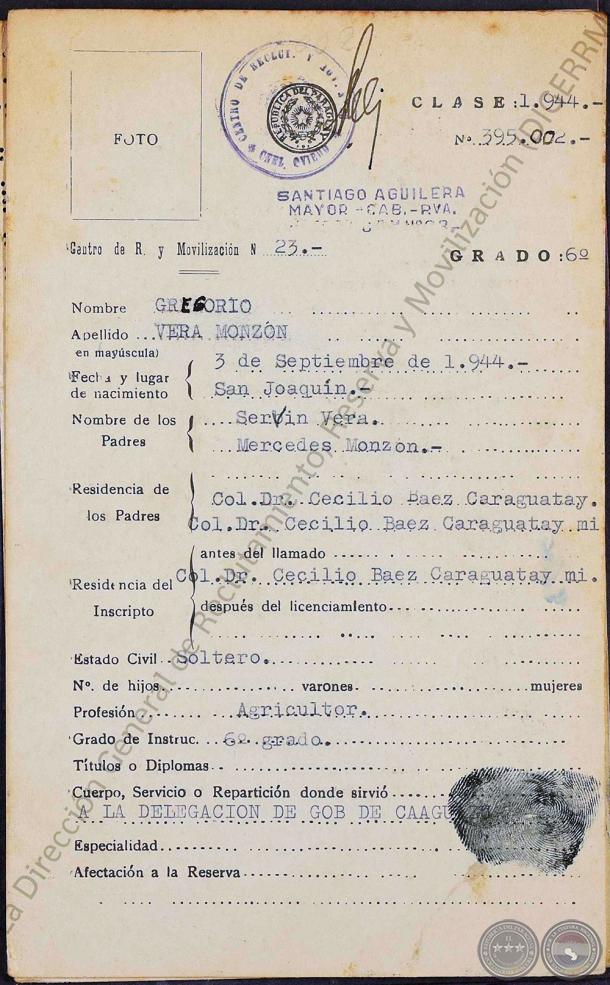 FOTO
CENTRO DE RECLUT. Y MOV.
REPUBLICA DEL PARAGUAY
CNEL. OVIEDO
CLASE: 1.944.-
Nº 395.002.-
SANTIAGO AGUILERA
MAYOR -CAB.-RVA.
Centro de R. y Movilización N 23.-
GRADO: 6º
Nombre GREGORIO
Apellido VERA MONZÓN
en mayúscula)
Fecha y lugar de nacimiento
3 de Septiembre de 1.944.-
San Joaquín.-
Nombre de los Padres
Servin Vera.
Mercedes Monzón.-
Residencia de los Padres
Col.Dr. Cecilio Baez Caraguatay.
Col.Dr. Cecilio Baez Caraguatay mi
antes del llamado
Residencia del Inscripto
Col.Dr. Cecilio Baez Caraguatay mi.
después del licenciamiento
Estado Civil Soltero.
Nº. de hijos varones mujeres
Profesión Agricultor.
Grado de Instruc. 6º grado.
Títulos o Diplomas
Cuerpo, Servicio o Repartición donde sirvió
A LA DELEGACION DE GOB DE
Especialidad
Afectación a la Reserva
La Dirección General de Reclutamiento, Reserva y Movilización (DIGERRM